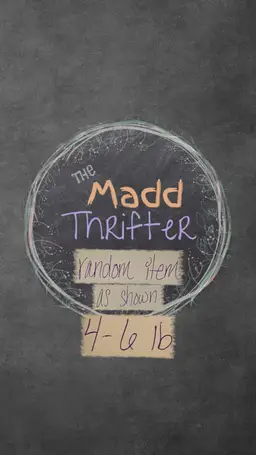 THE
Madd
THRIFTER
random item
as shown
4-6 lb